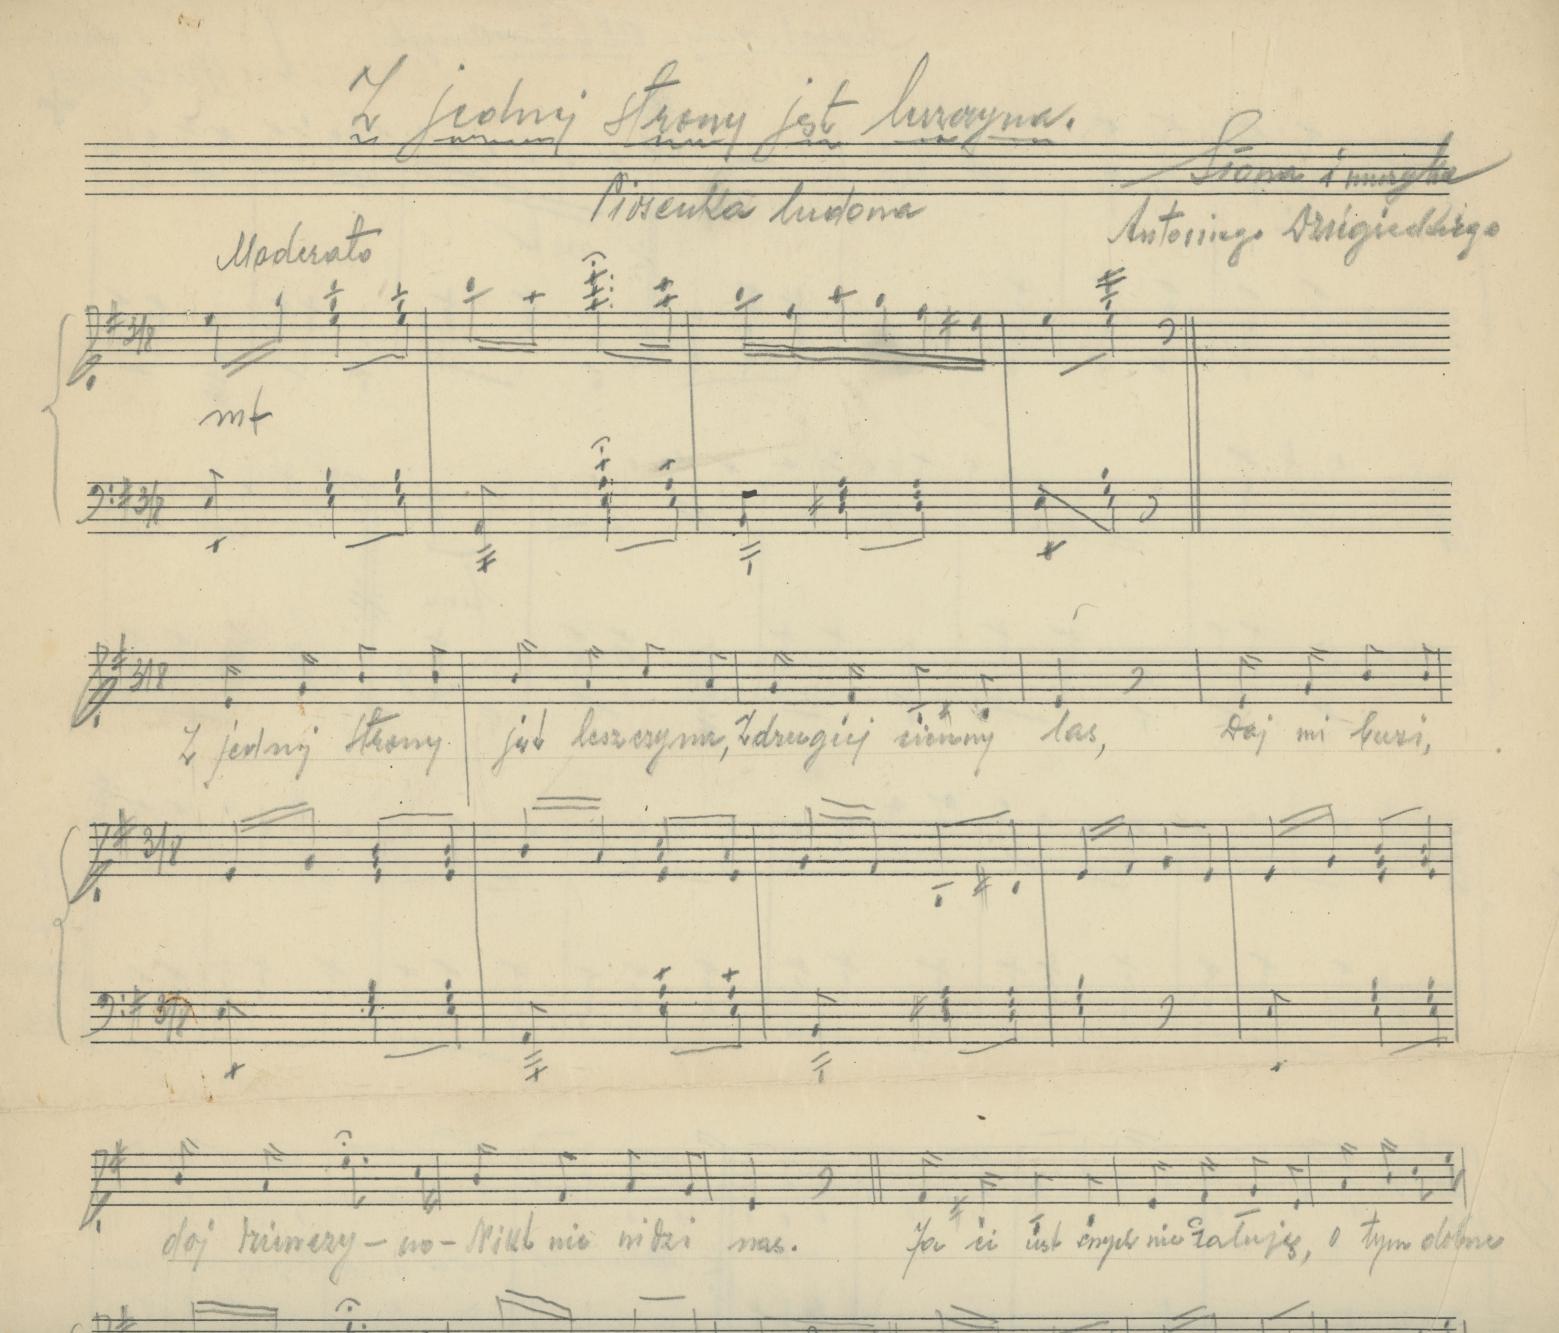 Z jednej strony jest leszczyna.
Słowa i muzyka
Piosenka ludowa
Antoniego
Moderato
3/8
mf
3/8
3/8
Z jednej strony jest leszczyna, Z drugiej ciemny las, Daj mi buzi,
3/8
3/8
daj dziewczy - no - Nikt nie widzi nas. Ja ci ust mych nie żałuję, o tym dobrze